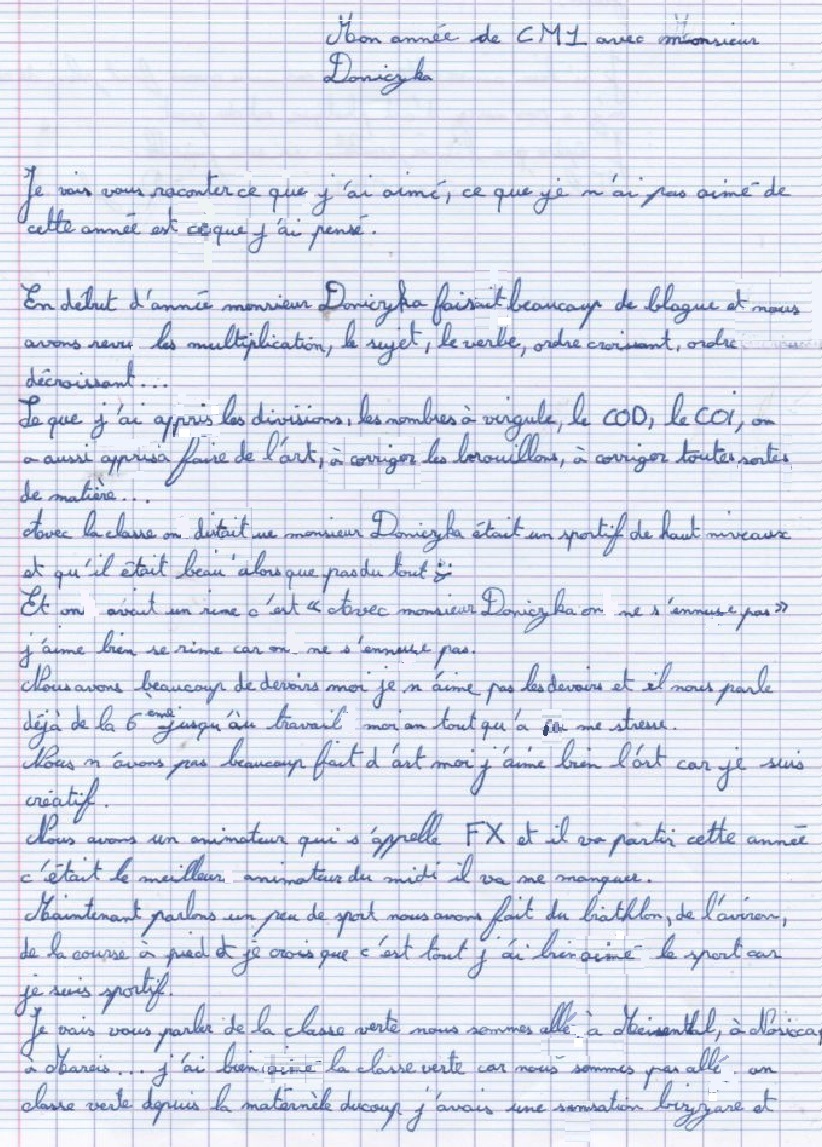 Mon année de CM1 avec monsieur
Doniczka
Je vais vous raconter ce que j'ai aimé, ce que je n'ai pas aimé de
cette année est ce que j'ai pensé.
En début d'année monsieur Doniczka faisait beaucoup de blague et nous
avons revu les multiplication, le sujet, le verbe, ordre croissant, ordre
décroissant...
Ce que j'ai appris les divisions, les nombres à virgule, le COD, le COi, on
a aussi appris à faire de l'art, à corriger les brouillons, à corriger toutes sortes
de matière...
Avec la classe on disait que monsieur Doniczka était un sportif de haut niveaux
et qu'il était beau alors que pas du tout
Et on avait un rime c'est « Avec monsieur Doniczka on ne s'ennuie pas »
j'aime bien se rime car on ne s'ennuie pas.
Nous avons beaucoup de devoirs moi je n'aime pas les devoirs et il nous parle
déjà de la 6 ème jusqu'au travail moi en tout qu'a ça me stresse.
Nous n'avons pas beaucoup fait d'art moi j'aime bien l'art car je suis
créatif.
Nous avons un animateur qui s'appelle FX et il va partir cette année
c'était le meilleur animateur du midi il va me manquer.
Maintenant parlons un peu de sport nous avons fait du biathlon, de l'aviron,
de la course à pied et je crois que c'est tout j'ai bien aimé le sport car
je suis sportif.
Je vais vous parler de la classe verte nous sommes allé à Meisenthal, à
à ... j'ai bien aimé la classe verte car nous sommes pas allé en
classe verte depuis la maternèle ducoup j'avais une sensation bizzare et